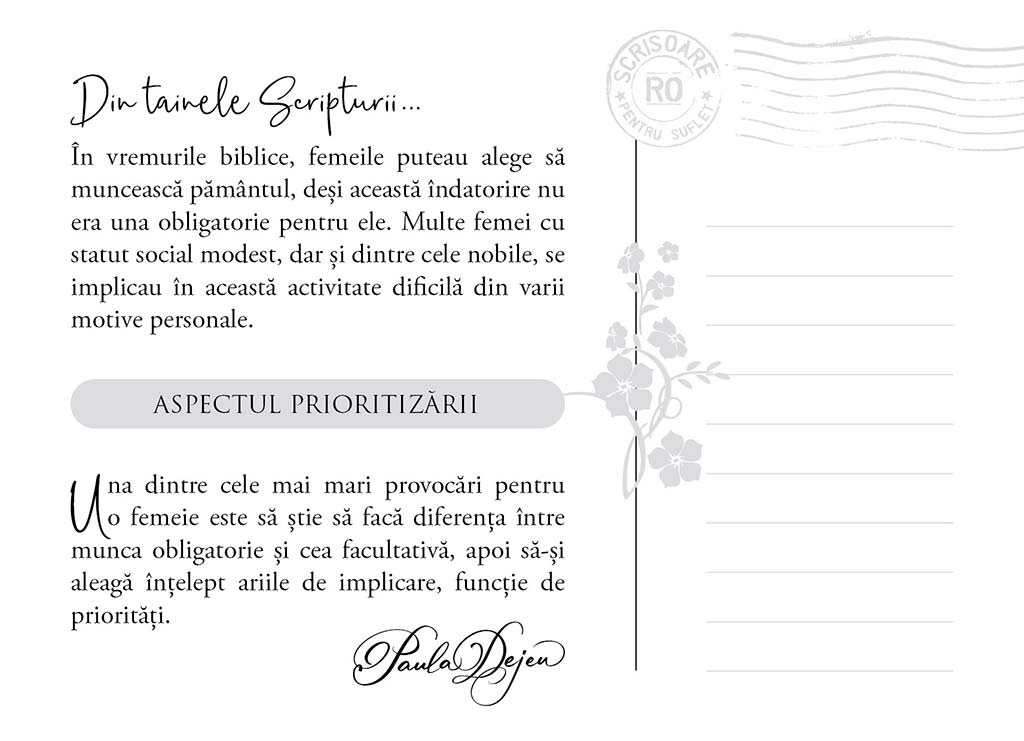 Din tainele Scripturii...
În vremurile biblice, femeile puteau alege să
muncească pământul, deși această îndatorire nu
era una obligatorie pentru ele. Multe femei cu
statut social modest, dar și dintre cele nobile, se
implicau în această activitate dificilă din varii
motive personale.
ASPECTUL PRIORITIZĂRII
Una dintre cele mai mari provocări pentru
o femeie este să știe să facă diferența între
munca obligatorie și cea facultativă, apoi să-și
aleagă înțelept ariile de implicare, funcție de
priorități.
Paula Dejeu
SCRISOARE
RO
PENTRU SUFLET